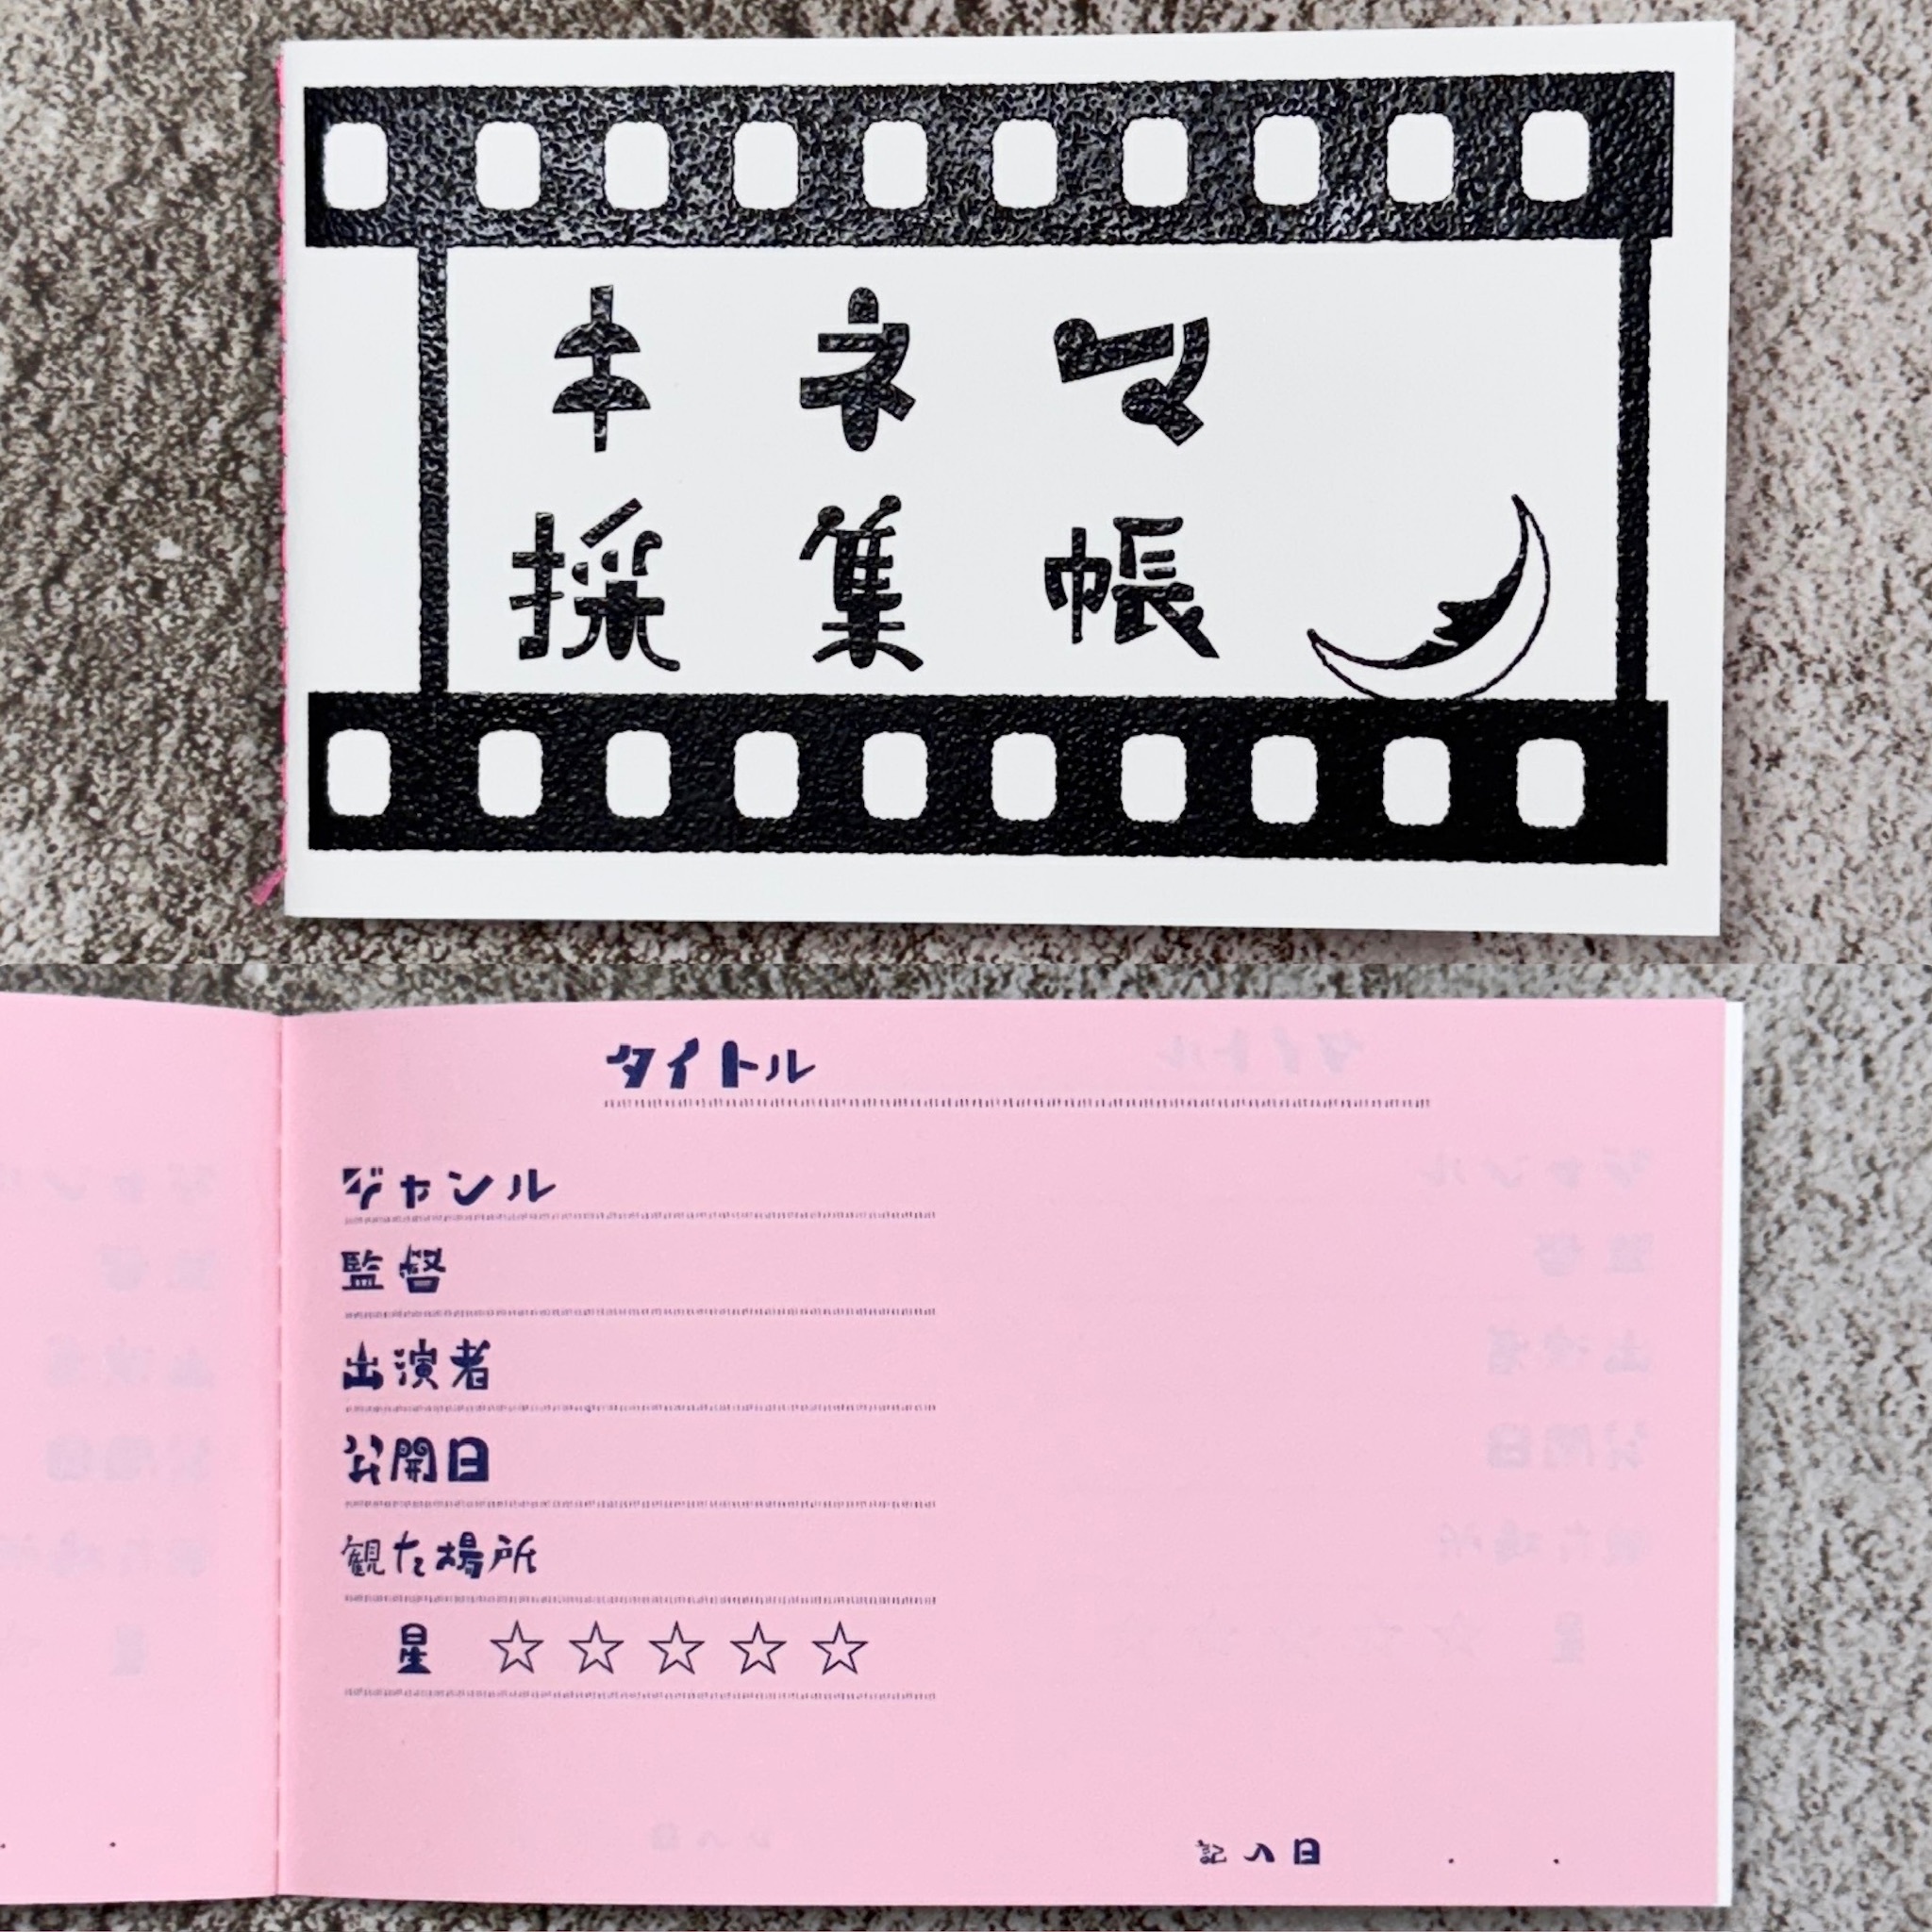 キネマ
採集帳
タイトル
ジャンル
監督
出演者
公開日
観た場所
星 ☆ ☆ ☆ ☆ ☆
記入日 . .